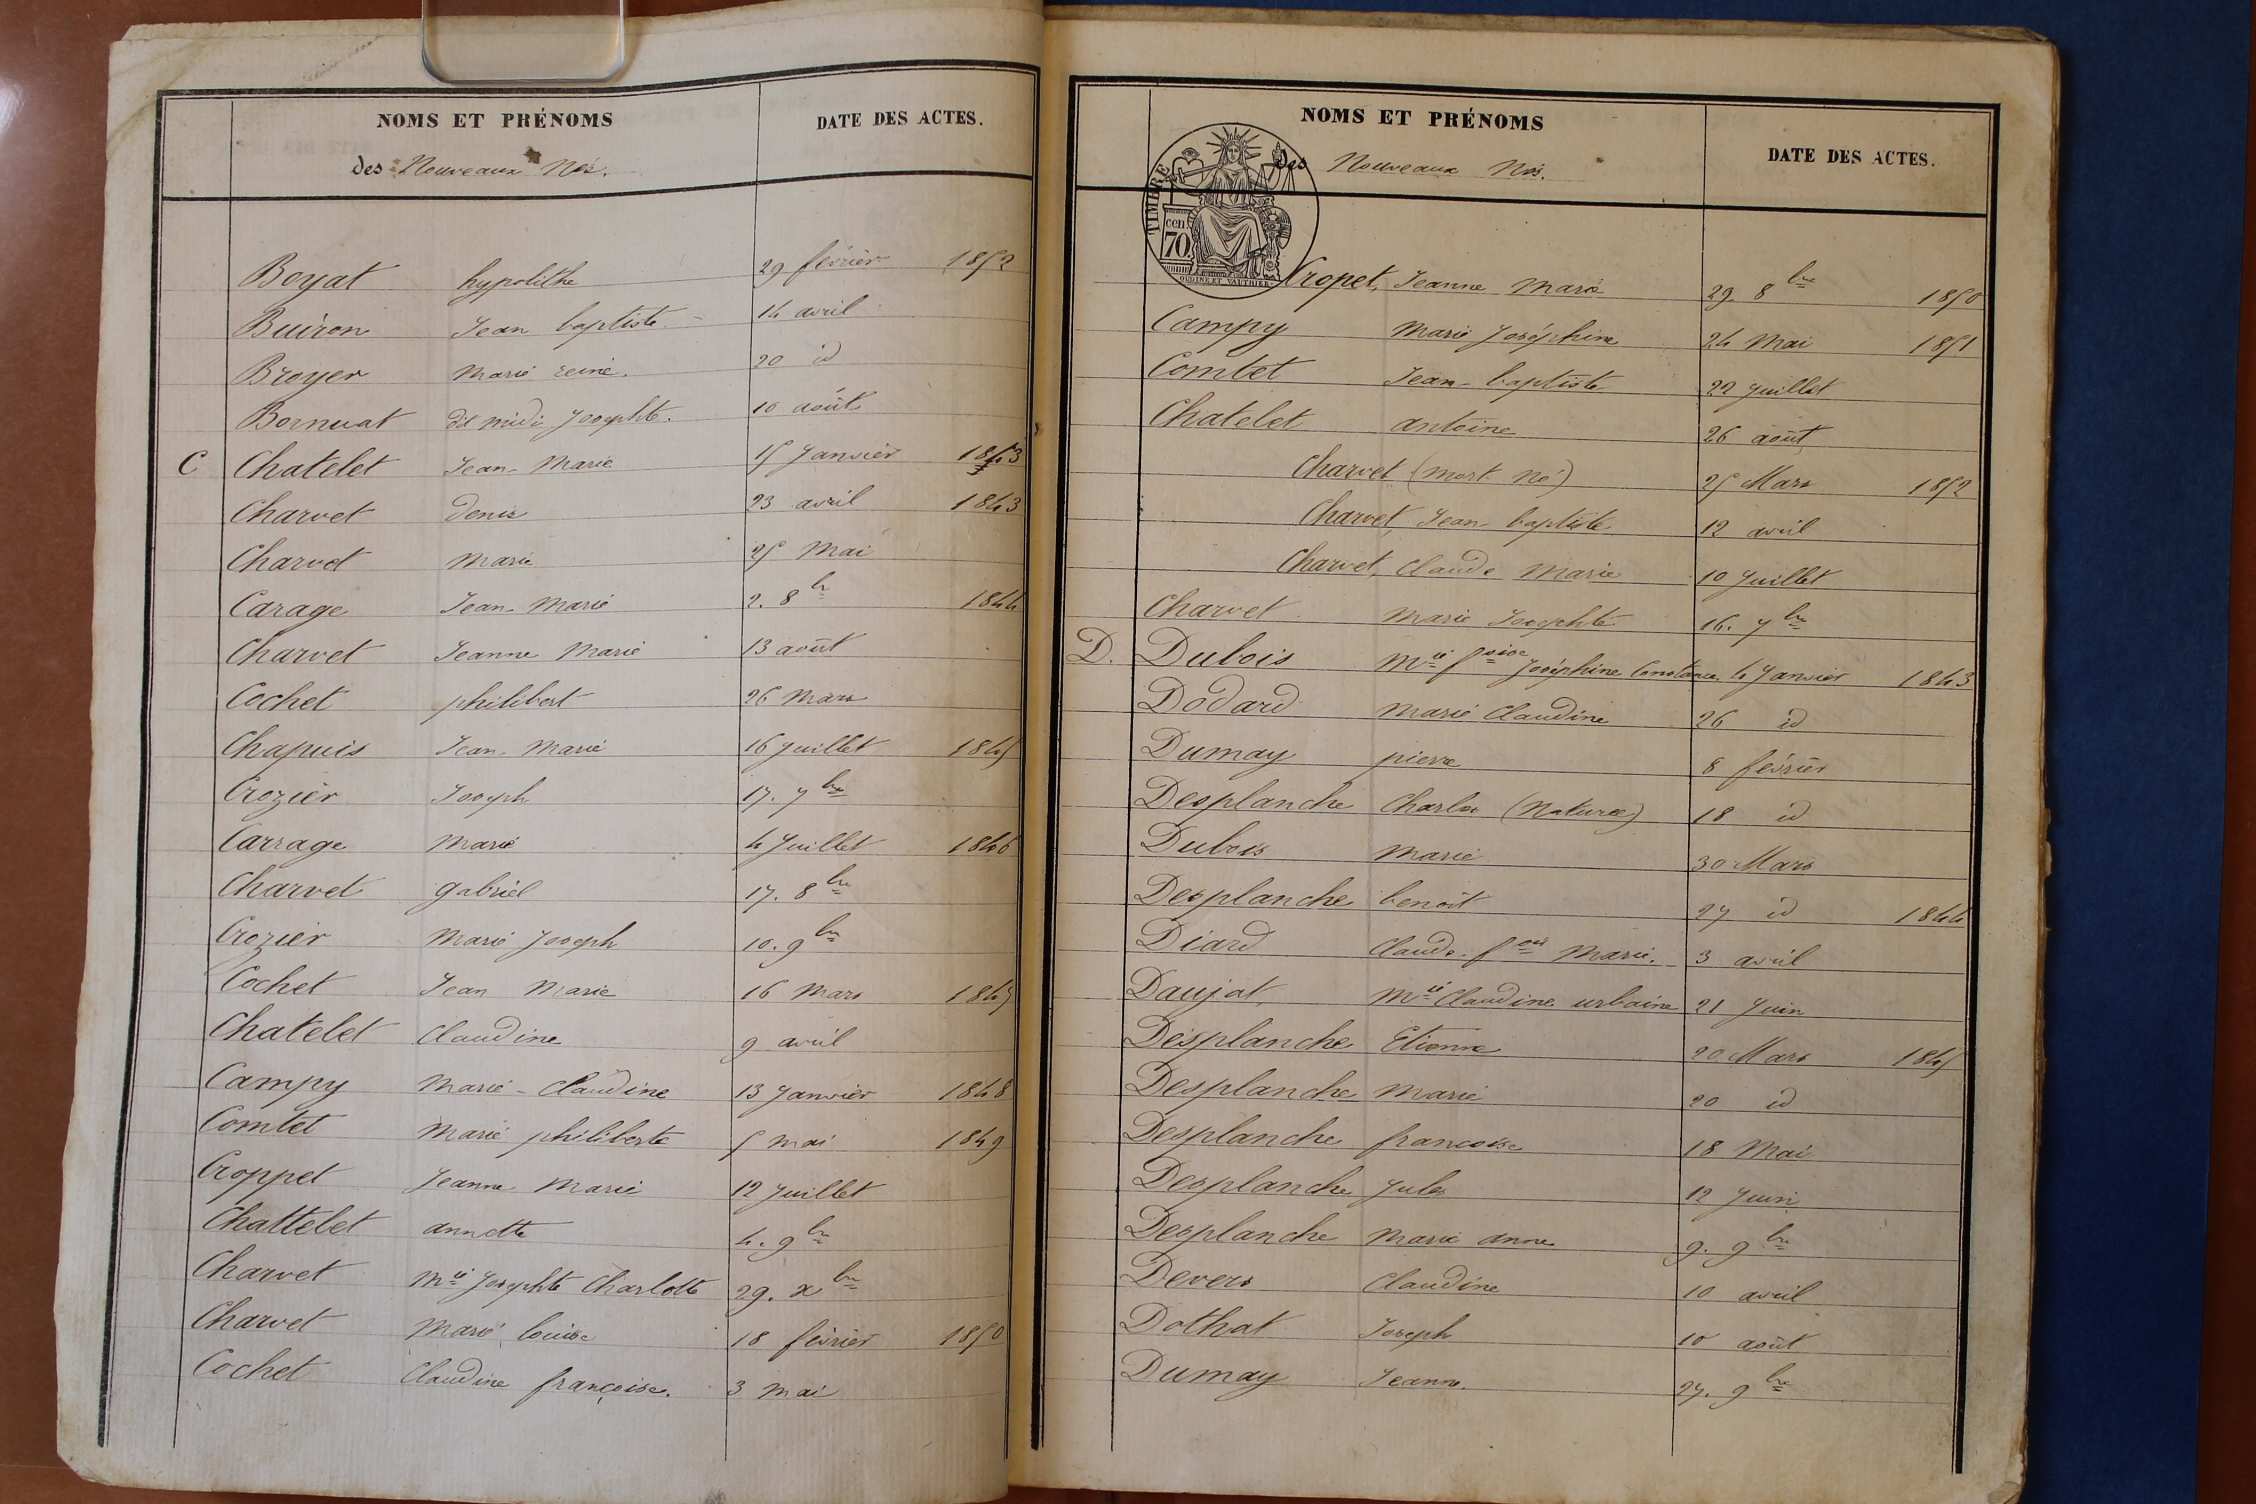 NOMS ET PRÉNOMS DATE DES ACTES.
des Nouveaux Nés.
Boyat hypolithe 29 février 1852
Buiron Jean baptiste 14 avril
Broyer Marie reine. 20 id
Bornuat dit midi Josephte. 10 août
C Chatelet Jean-Marie 15 Janvier 1843
Charvet denis 23 avril 1843
Charvet Marie 25 Mai
Carage Jean-Marie 2. 8bre 1844
Charvet Jeanne Marie 13 août
Cochet philibert 26 Mars
Chapuis Jean-Marie 16 Juillet 1845
Crozier Joseph 17. 7bre
Carrage Marie 4 Juillet 1846
Charvet gabriel 17. 8bre
Crozier Marie Joseph 10. 9bre
Cochet Jean Marie 16 Mars 1847
Chatelet Claudine 9 avril
Campy Marie-Claudine 13 Janvier 1848
Comtet Marie philiberte 5 mai 1849
Croppet Jeanne Marie 12 Juillet
Chattelet annette 4. 9bre
Charvet Mie Josephte Charlotte 29. xbre
Charvet Marie louise 18 février 1850
Cochet Claudine françoise. 3 mai
NOMS ET PRÉNOMS DATE DES ACTES.
des Nouveaux Nés.
TIMBRE
70 cen.
OUDINE ET VAUTHIER
Cropet, Jeanne Marie 29 8bre 1850
Campy Marie Joséphine 24 Mai 1851
Comtet Jean-baptiste 22 Juillet
Chatelet antoine 26 août
Charvet (mort né) 25 Mars 1852
Charvet, Jean-baptiste 12 avril
Charvet, Claude Marie 10 Juillet
Charvet Marie Josephte 16. 7bre
D. Dubois Mie fsoise Joséphine Constance 4 Janvier 1843
Dodard Marie Claudine 26 id
Dumay pierre 8 février
Desplanche Charles (Naturel) 18 id
Dubois Marie 30 Mars
Desplanche benoît 27 id 1844
Diard Claude-fois Marie. 3 avril
Daujat, Mie Claudine urbaine 21 Juin
Desplanche Etienne 20 Mars 1845
Desplanche Marie 20 id
Desplanche francoise 18 Mai
Desplanche Jules 12 Juin
Desplanche Marie anne 9. 9bre
Devers Claudine 10 avril
Dothat Joseph 10 août
Dumay Jeanne. 27. 9bre